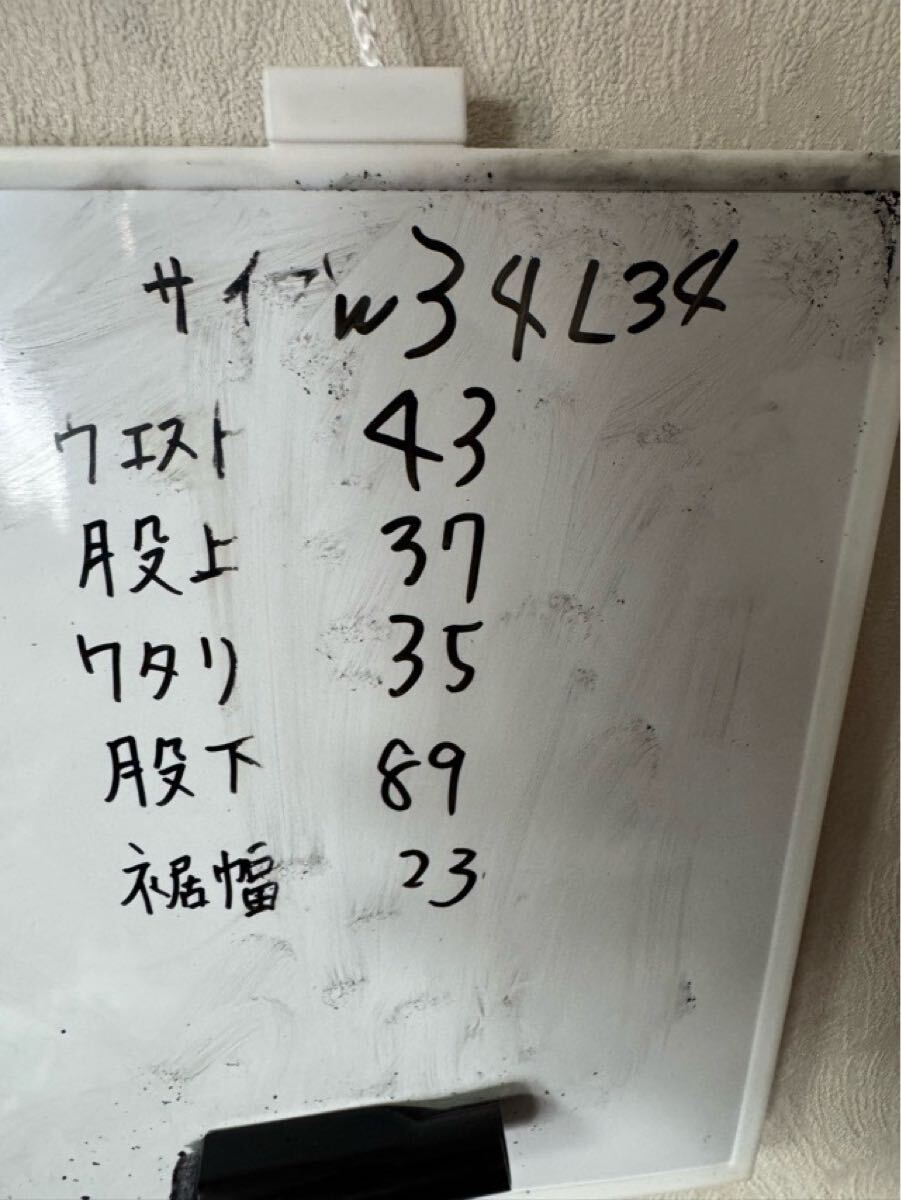 サイズ W34 L34
ウエスト 43
股上 37
ワタリ 35
股下 89
裾幅 23